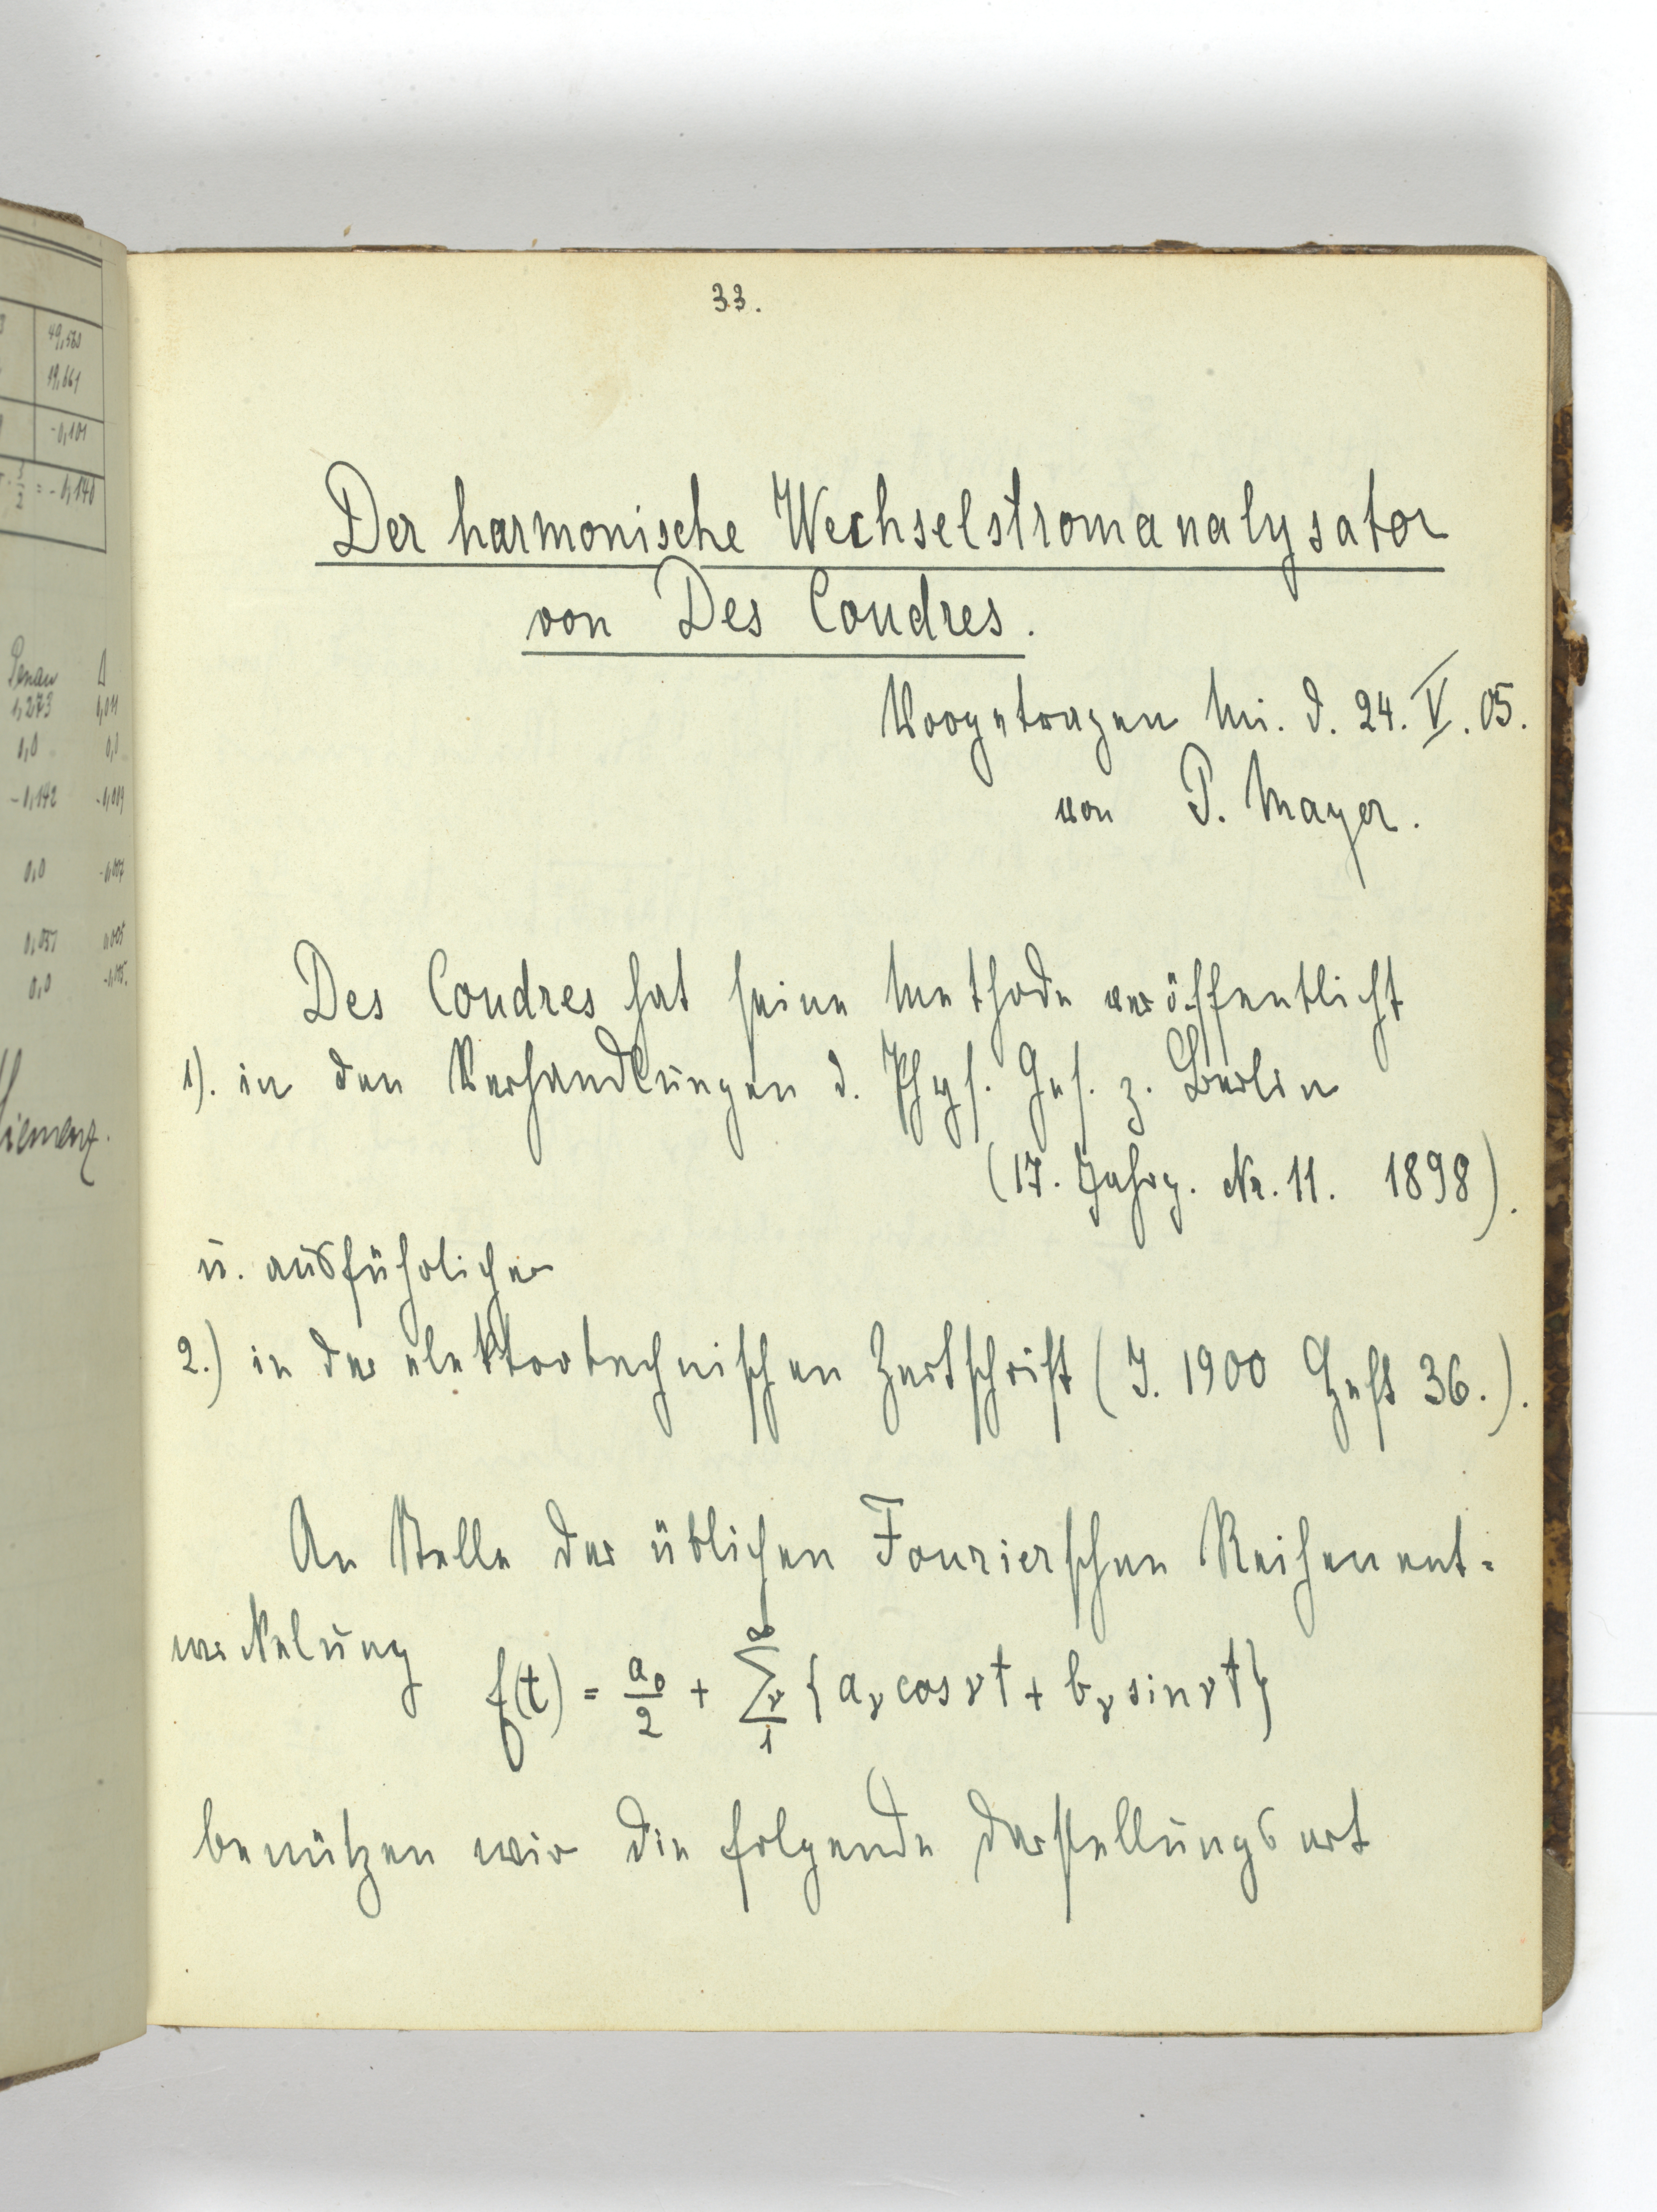 33.
Der harmonische Wechselstromanalysator
von Des Coudres.
Vorgetragen Mi. d. 24. V. 05.
von P. Mayer.
Des Coudres hat seine Methode veröffentlicht
1). in den Verhandlungen d. Phys. Ges. z. Berlin
(17. Jahrg. Nr. 11. 1898).
u. ausführlicher
2.) in der elektrotechnischen Zeitschrift (J. 1900 Heft 36.).
An Stelle der üblichen Fourierschen Reihenent-
wickelung f(t) = a₀/2 + ∑ν₁^∞ {aν cos νt + bν sin νt}
benützen wir die folgende Darstellungsart
49,580
19,661
-0,101
3/2 = -0,140
Genau Δ
1,273
0,0 0,0
-0,142
0,0
0,0